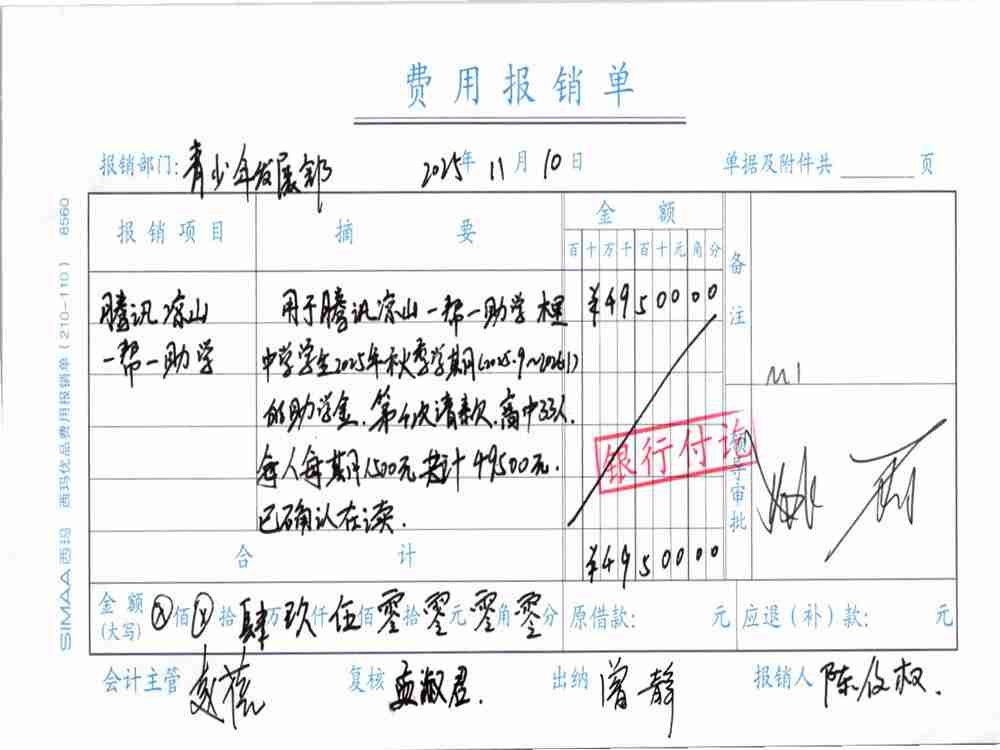 费用报销单
报销部门: 青少年发展部 2025年 11月 10日 单据及附件共 页
报销项目 摘要 金额 备注
百十万千百十元角分
腾讯凉山 用于腾讯凉山一帮一助学 ¥4950000
一帮一助学 中学学生2025年秋季学期(2025.9~2026.1)
的助学金.第 次请款.高中33人.
每人每期1500元 共计49500元.
已确认在读.
银行付讫
领导审批
合计 ¥4950000
金额(大写) ⊗佰 拾肆万玖仟伍佰零拾零元零角零分 原借款: 元 应退(补)款: 元
会计主管 复核 孟淑君. 出纳 曾静 报销人 陈
SIMAA 西玛 西玛优品费用报销单(210-110) 8560